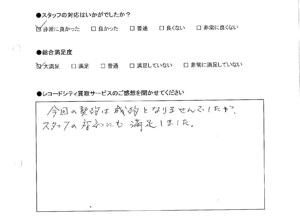 ●スタッフの対応はいかがでしたか?
☑非常に良かった □良かった □普通 □良くない □非常に良くない
●総合満足度
☑大満足 □満足 □普通 □満足していない □非常に満足していない
●レコードシティ買取サービスのご感想を聞かせてください
今回の契約は成約となりませんでしたが、
スタッフの にも 満足しました。